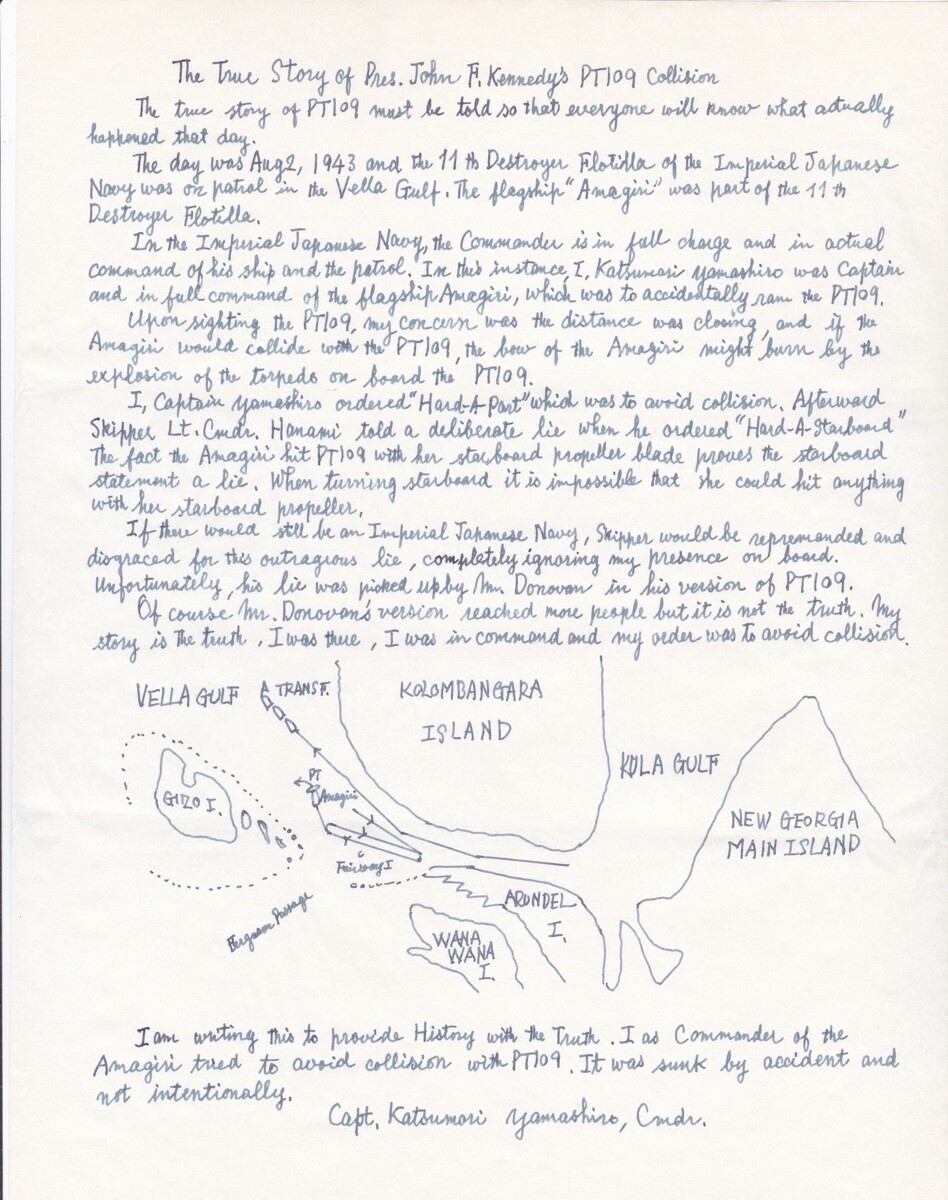 The True Story of Pres. John F. Kennedy's PT109 Collision
The true story of PT109 must be told so that everyone will know what actually
happened that day.
The day was Aug 2, 1943 and the 11 th Destroyer Flotilla of the Imperial Japanese
Navy was on patrol in the Vella Gulf. The flagship "Amagiri" was part of the 11 th
Destroyer Flotilla.
In the Imperial Japanese Navy, the Commander is in full charge and in actual
command of his ship and the patrol. In this instance, I, Katsumori Yamashiro was Captain
and in full command of the flagship Amagiri, which was to accidentally ram the PT109.
Upon sighting the PT109, my concern was the distance was closing, and if the
Amagiri would collide with the PT109, the bow of the Amagiri might burn by the
explosion of the torpedo on board the PT109.
I, Captain Yamashiro ordered "Hard-A-Port" which was to avoid collision. Afterward
Skipper Lt. Cmdr. Hanami told a deliberate lie when he ordered "Hard-A-Starboard"
The fact the Amagiri hit PT109 with her starboard propeller blade proves the starboard
statement a lie. When turning starboard it is impossible that she could hit anything
with her starboard propeller.
If there would still be an Imperial Japanese Navy, Skipper would be repremanded and
disgraced for this outragious lie, completely ignoring my presence on board.
Unfortunately, his lie was picked up by Mr. Donovan in his version of PT109.
Of course Mr. Donovan's version reached more people but it is not the truth. My
story is the truth, I was there, I was in command and my order was to avoid collision.
VELLA GULF
TRANSF.
KOLOMBANGARA
ISLAND
KULA GULF
PT
Amagiri
GIZO I.
NEW GEORGIA
MAIN ISLAND
Fairway I
ARUNDEL
I.
Ferguson Passage
WANA
WANA
I.
I am writing this to provide History with the Truth. I as Commander of the
Amagiri tried to avoid collision with PT109. It was sunk by accident and
not intentionally.
Capt. Katsumori Yamashiro, Cmdr.